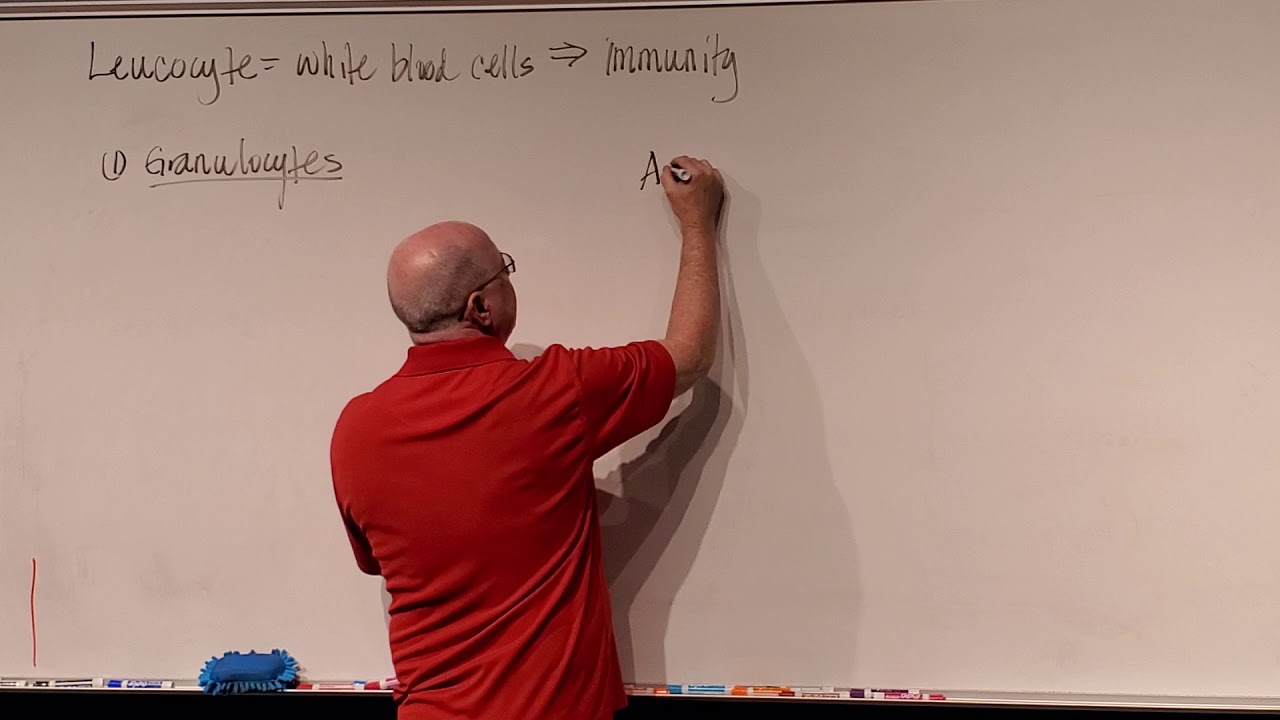 Leucocyte = white blood cells ⇒ immunity
① Granulocytes
A